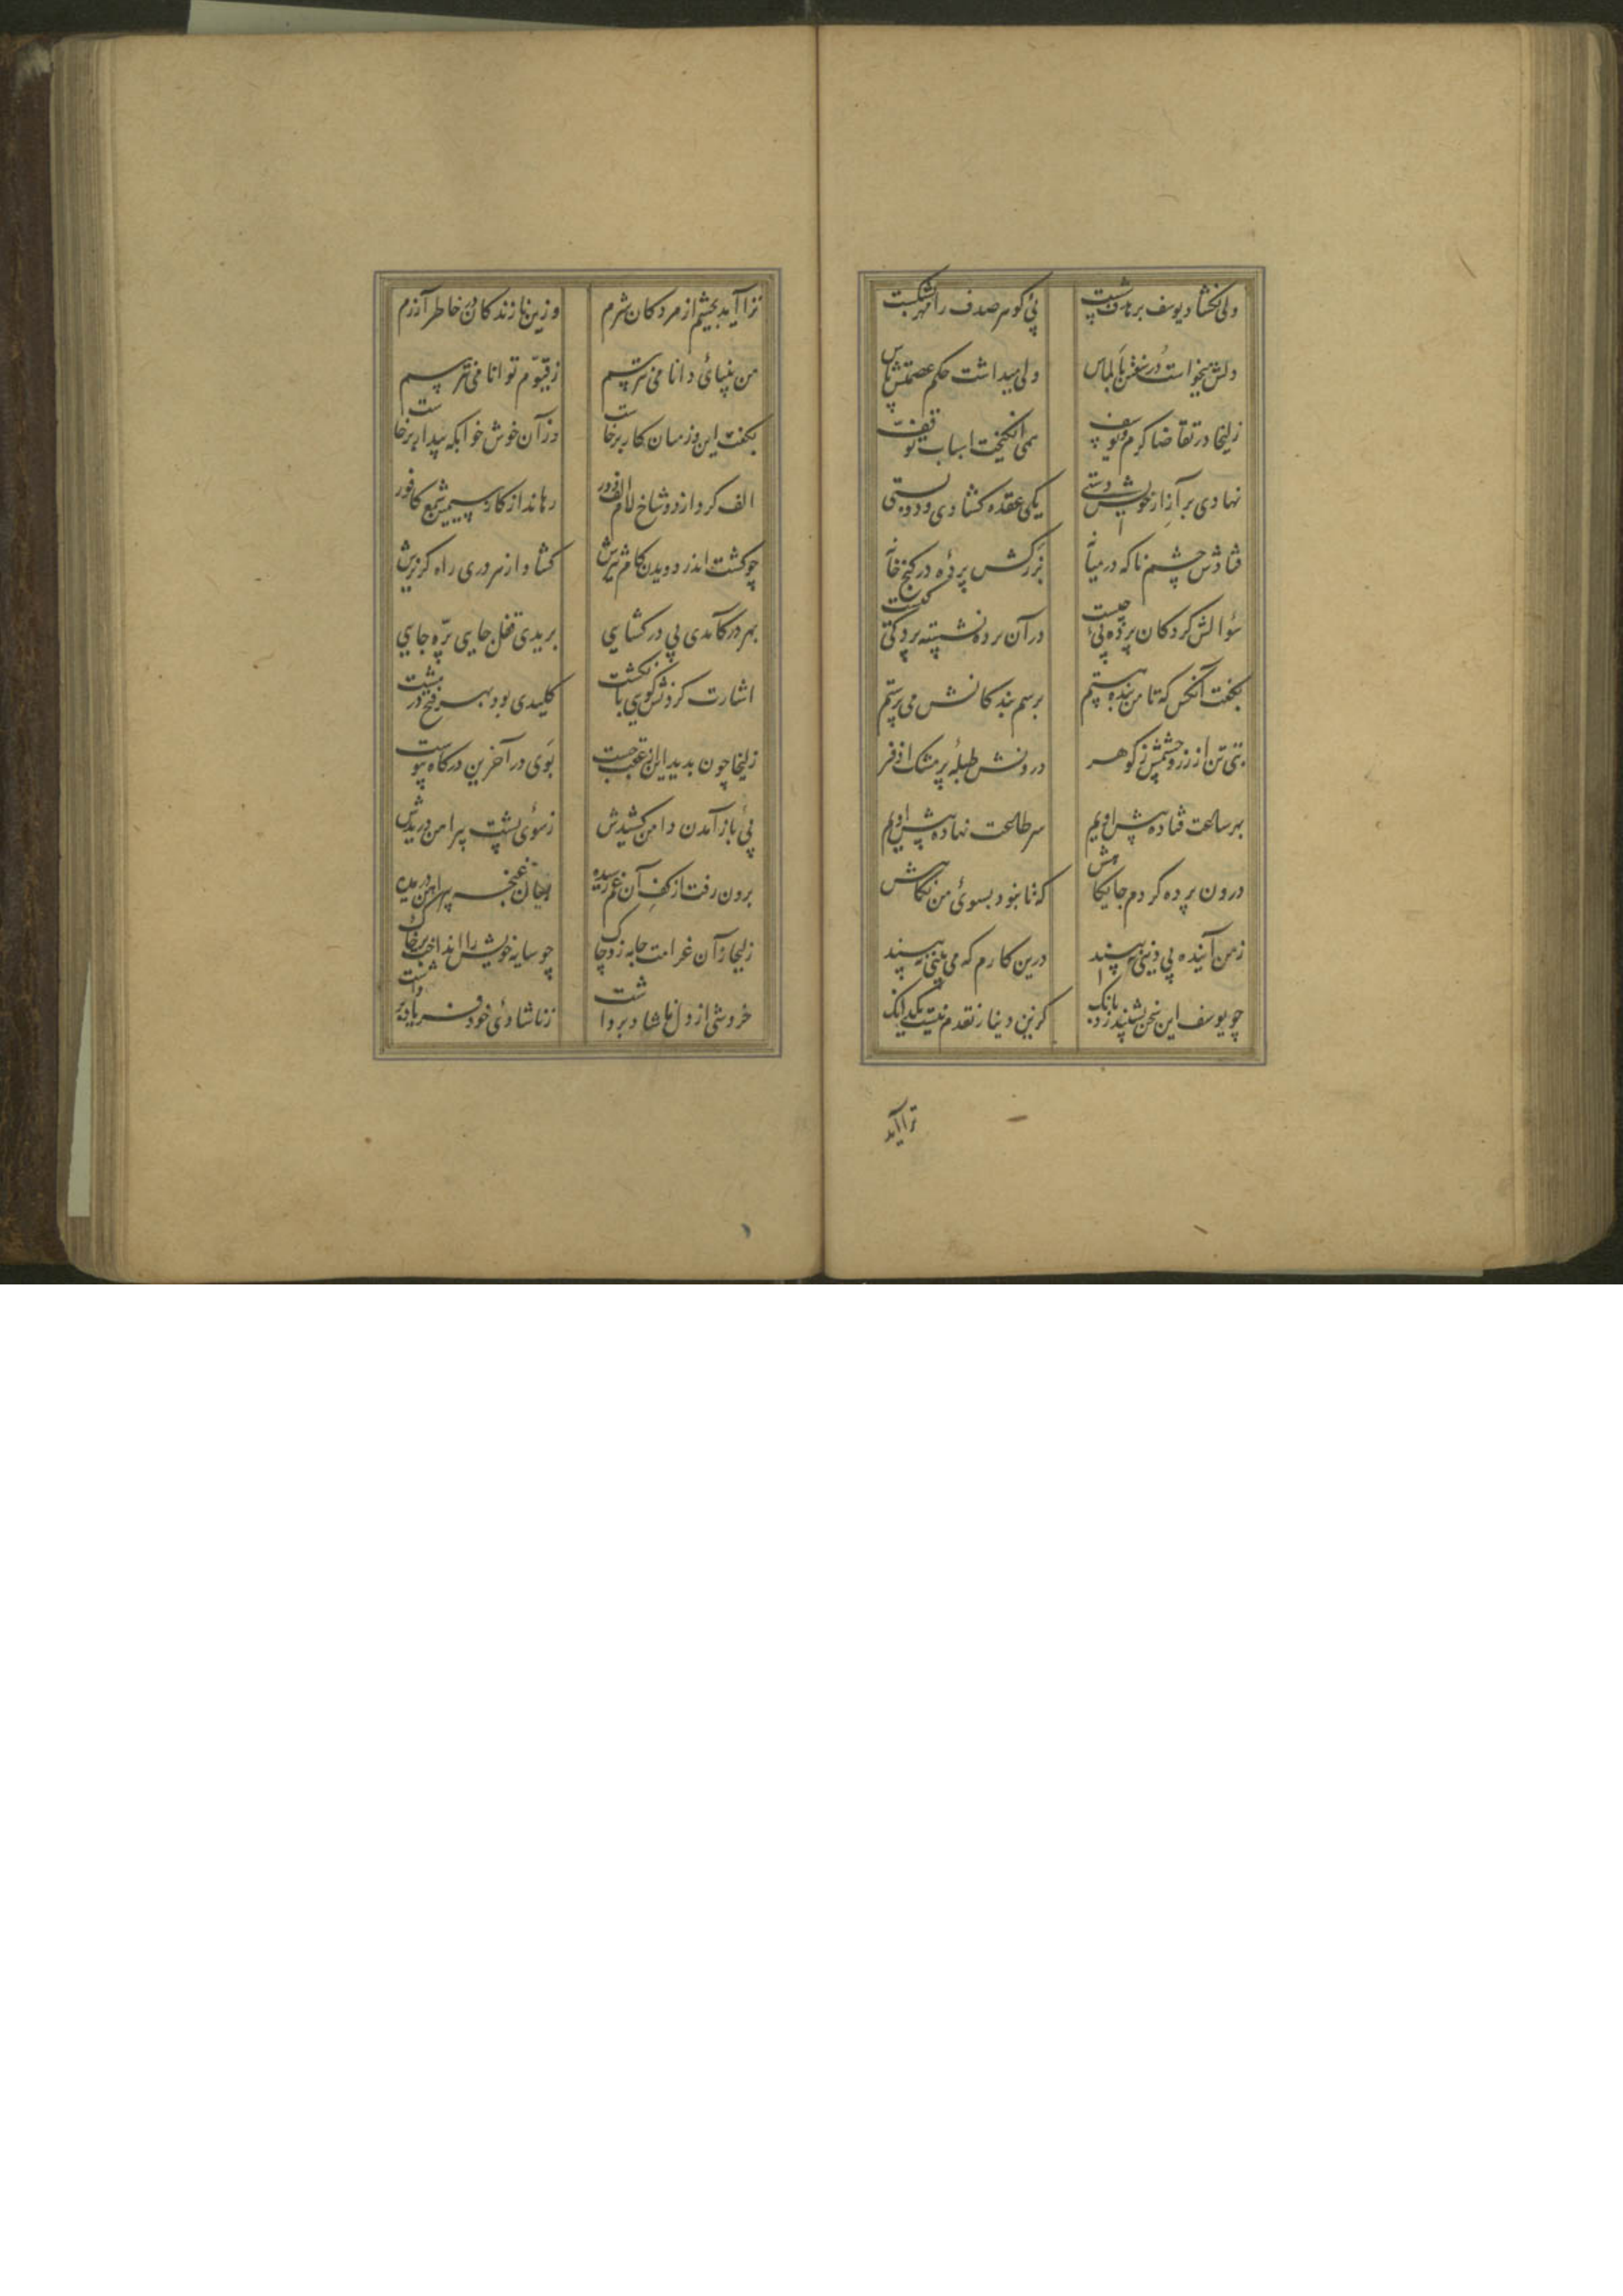 ولی نگشاد یوسف بر هدف شست پی گوهر صدف را مهر نشکست
دلش میخواست در سفتن بالماس ولی میداشت حکم عصمتش پاس
زلیخا در تقاضا گرم و یوسف همی انگیخت اسباب توقف
نهادی بر ازار خویش دستی یکی عقده گشادی و دو بستی
فتادش چشم ناگه در میانه بزرکش پرده در کنج خانه
سؤالش کرد کان پرده پی چیست در آن پرده نشسته پردگی کیست
بگفت آنکس که تا من بنده هستم برسم بندگانش می پرستم
بتی تن از زر و چشمش ز گوهر درونش طبله پر مشک اذفر
بهر ساعت فتاده پیش اویم سر طاعت نهاده پیش اویم
درون پرده کردم جایگاهش که تا نبود بسوی من نگاهش
ز من آیین بی دینی نبیند درین کارم که می بینی نبیند
چو یوسف این سخن بشنید زد بانگ کزین دینار نقدم نیست یک دانگ
ترا آید
ترا آید بچشم از مردگان شرم وزین نازندگان در خاطر آزرم
من بینای دانا می نترسم ز قیوم توانا می نترسم
بگفت این وز میان کار برخاست وز آن خوش خوابگه بیدار برخاست
الف کرد از دو شاخ لام الف دور رهاند از گاز سیمین شمع کافور
چو گشت اندر دویدن گام تیزش گشاد از هر دری راه گریزش
بهر در کامدی بی در گشایی بریدی قفل جایی پره جایی
اشارت کردنش گویی بانگشت کلیدی بود بهر فتح در مشت
زلیخا چون بدید این از عقب جست بوی در آخرین درگاه پیوست
پی باز آمدن دامن کشیدش ز سوی پشت پیراهن دریدش
برون رفت از کف آن غم رسیده بسان غنچه پیراهن دریده
زلیخا زآن غرامت جامه زد چاک چو سایه خویش را انداخت بر خاک
خروشی از دل ناشاد برداشت ز ناشادی خود فریاد برداشت